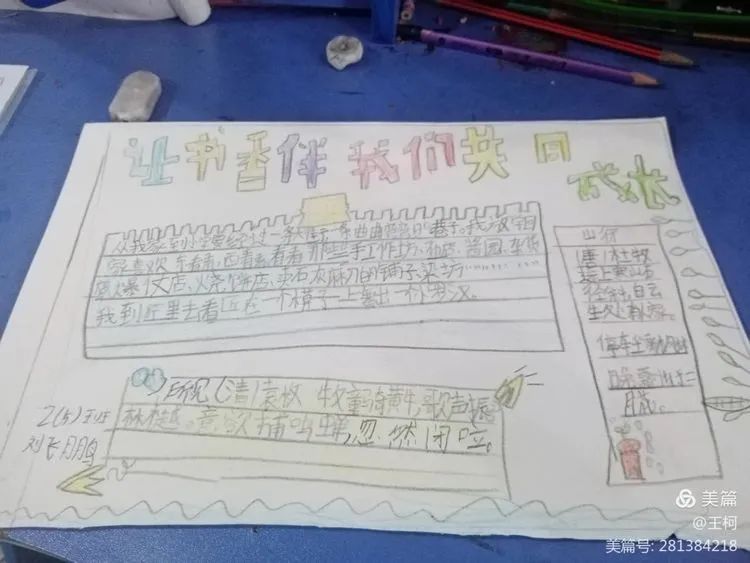 让书香伴我们共同
成长
从我家到小学要经过一条大街,一条曲曲弯弯的巷子。我放学回
家喜欢东看看,西看看,看看那些手工作坊、布店、酱园、
爆仗店、烧饼店、卖石灰麻刀的铺子、染坊……
我到 里去看 在一个模子上 出一个罗汉。
山行
唐 杜牧
远上寒山石
径斜,白云
生处 人家。
停车坐
月
所见(清)袁枚 牧童骑黄牛,歌声振
林樾。意欲捕鸣蝉,忽然闭
2(5)王班
刘飞鹏
美篇
@王柯
美篇号: 281384218